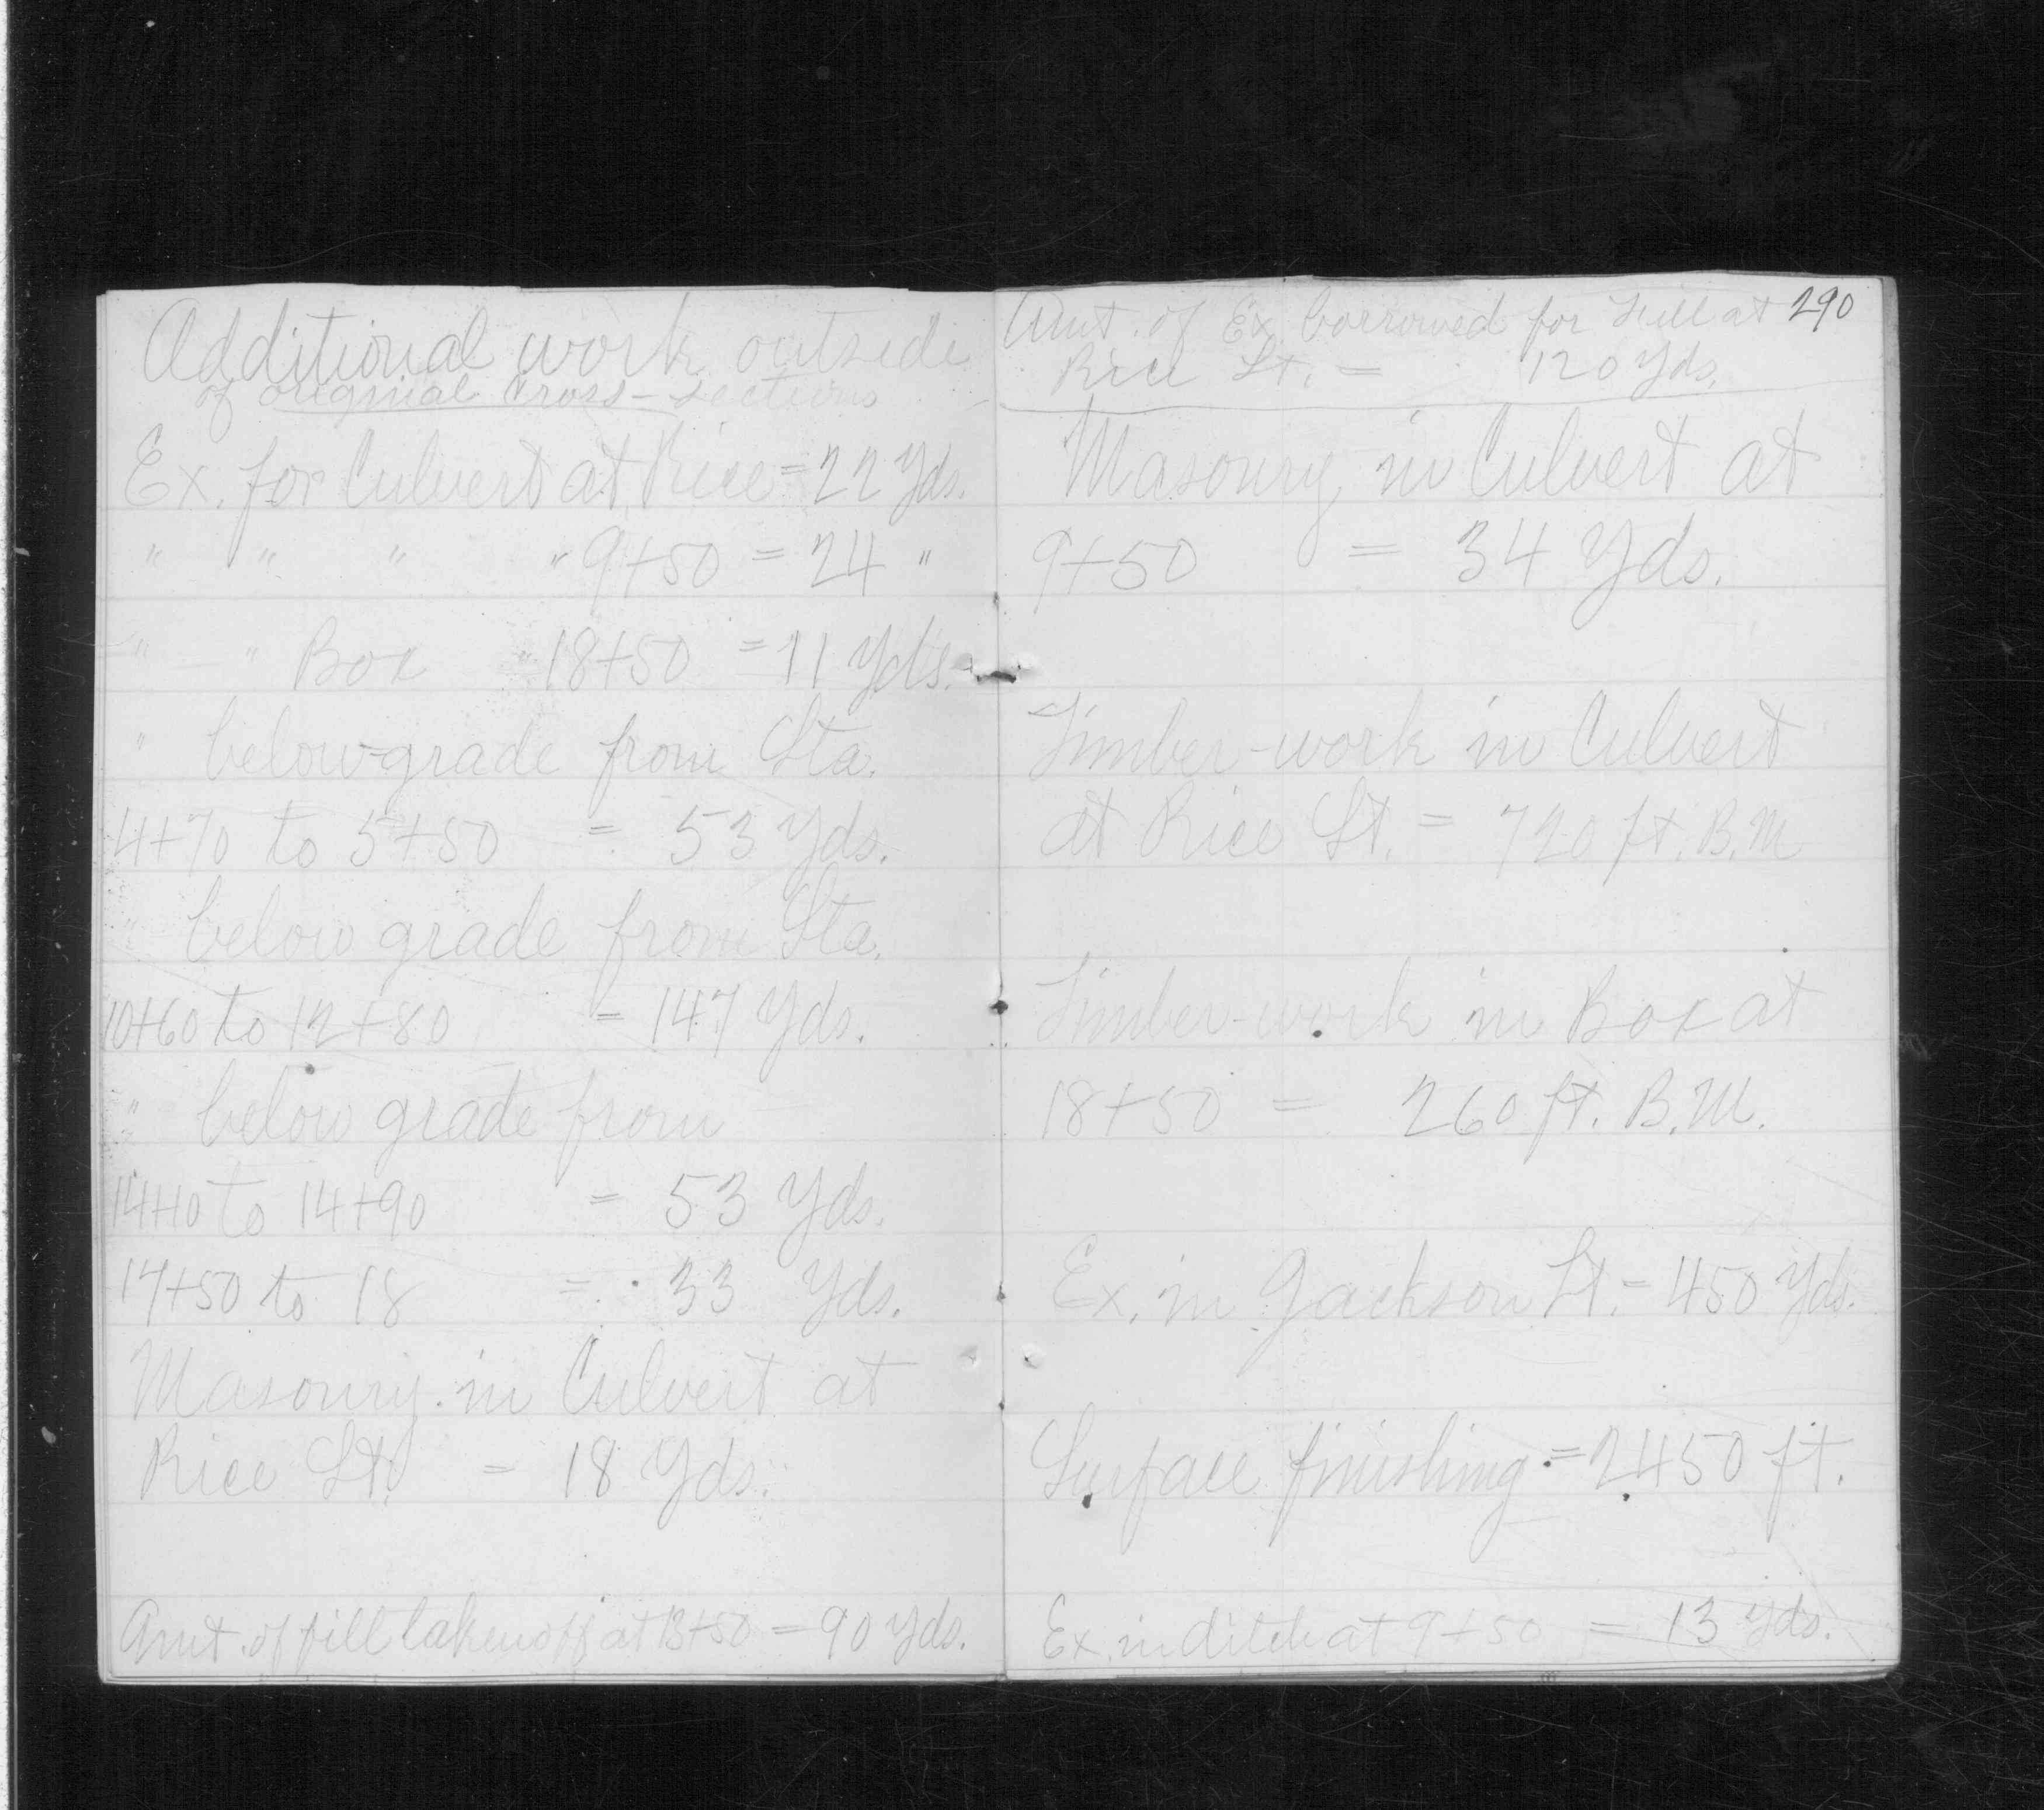 Additional work outside
of original Cross-sections
Ex. for Culvert at Rice = 22 Yds.
" " " " 9+50 = 24 "
" " Box " 18+50 = 11 Yds.
" below grade from Sta.
4+70 to 5+50 = 53 Yds.
" below grade from Sta.
10+60 to 12+80 = 147 Yds.
" below grade from
14+10 to 14+90 = 53 Yds.
17+50 to 18 = 33 Yds.
Masonry in Culvert at
Rice St. = 18 Yds.
Amt. of fill taken off at 13+50 = 90 Yds.
290
Amt. of Ex. borrowed for Fill at
Rice St. = 120 Yds.
Masonry in Culvert at
9+50 = 34 Yds.
Timber-work in Culvert
at Rice St. = 720 ft. B.M
Timber-work in Box at
18+50 = 260 ft. B.M.
Ex. in Jackson St. = 450 Yds.
Surface finishing = 2450 ft.
Ex. in ditch at 9+50 = 13 Yds.